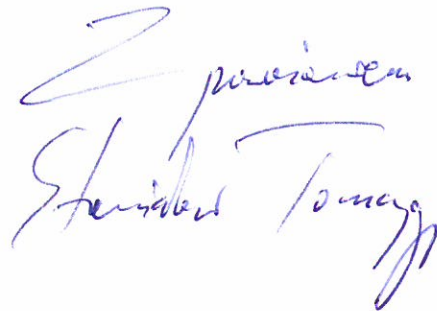 Z poważaniem
Stanisław Tomczyk